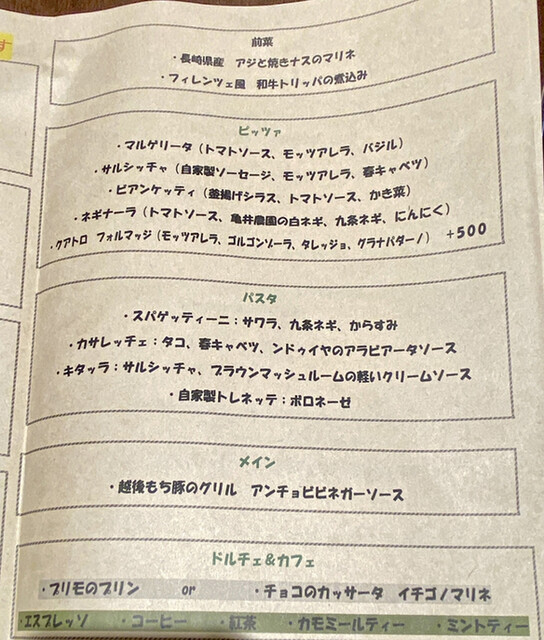 す
前菜
・長崎県産 アジと焼きナスのマリネ
・フィレンツェ風 和牛トリッパの煮込み
ピッツァ
・マルゲリータ（トマトソース、モッツアレラ、バジル）
・サルシッチャ（自家製ソーセージ、モッツアレラ、春キャベツ）
・ビアンケッティ（釜揚げシラス、トマトソース、かき菜）
・ネギナーラ（トマトソース、亀井農園の白ネギ、九条ネギ、にんにく）
・クアトロ フォルマッジ（モッツアレラ、ゴルゴンゾーラ、タレッジョ、グラナパダーノ） +500
パスタ
・スパゲッティーニ：サワラ、九条ネギ、からすみ
・カサレッチェ：タコ、春キャベツ、ンドゥイヤのアラビアータソース
・キタッラ：サルシッチャ、ブラウンマッシュルームの軽いクリームソース
・自家製トレネッテ：ボロネーゼ
メイン
・越後もち豚のグリル アンチョビビネガーソース
ドルチェ&カフェ
・プリモのプリン or ・チョコのカッサータ イチゴノマリネ
・エスプレッソ ・コーヒー ・紅茶 ・カモミールティー ・ミントティー